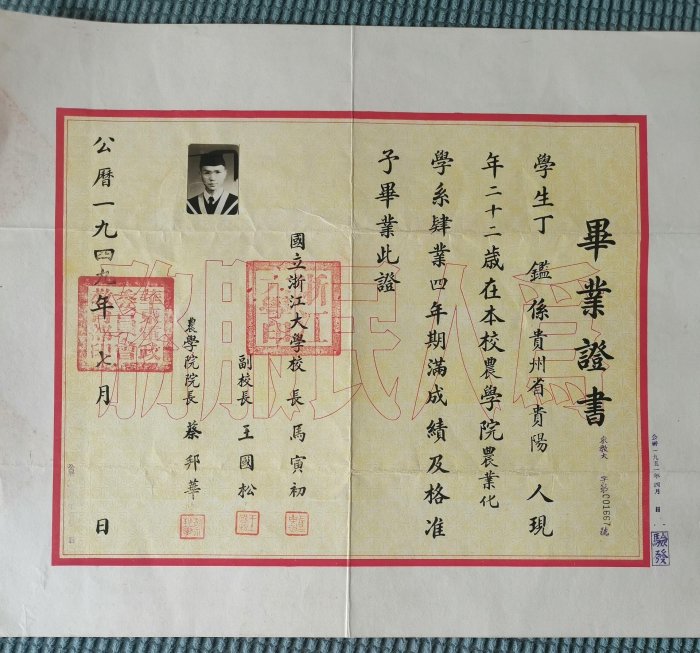 畢業證書
東教大 字第001667號
學生丁 鑑係貴州省貴陽 人現
年二十二歲在本校農學院農業化
學系肄業四年期滿成績及格准
予畢業此證
國立浙江大學校 長 馬寅初
副校長 王國松
農學院院長 蔡邦華
公曆一九四九年七月 日
為人民服務
浙江
大學印
公曆一九五一年四月 日
驗發